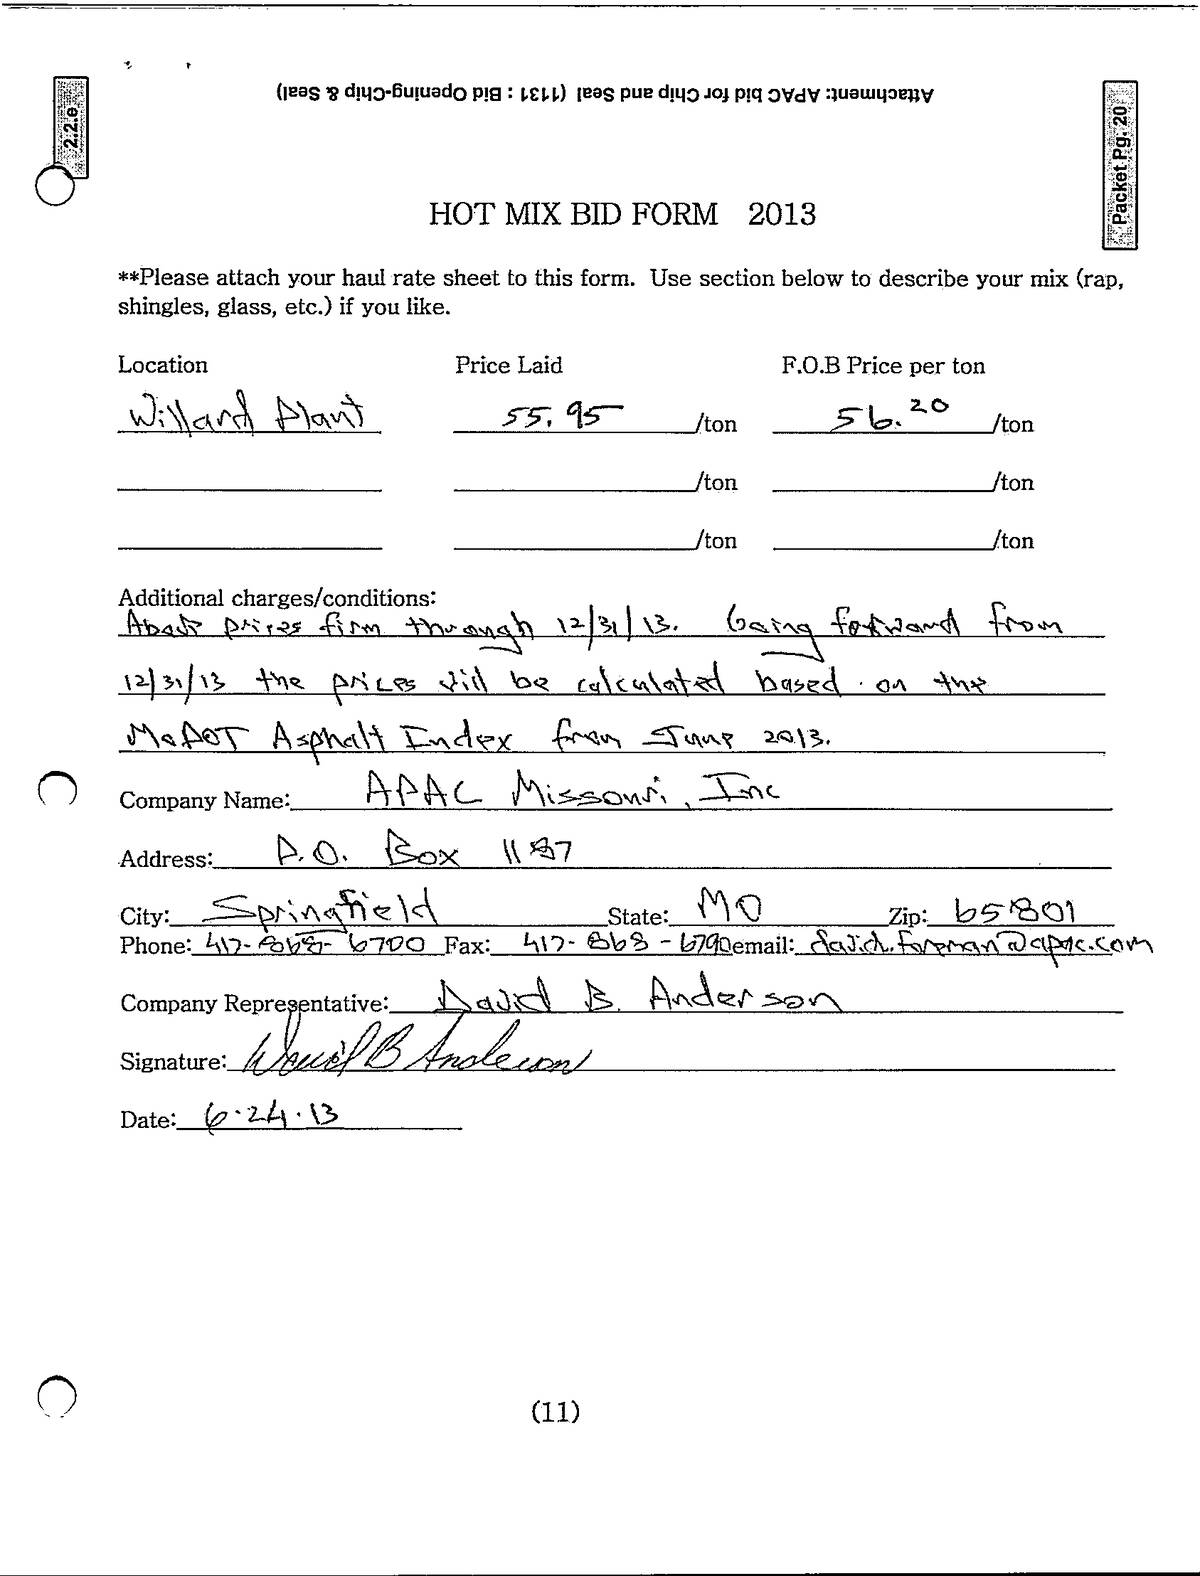 2.2.e
Attachment: APAC bid for Chip and Seal (1131 : Bid Opening-Chip & Seal)
Packet Pg. 20
HOT MIX BID FORM 2013
**Please attach your haul rate sheet to this form. Use section below to describe your mix (rap,
shingles, glass, etc.) if you like.
Location Price Laid F.O.B Price per ton
Willard Plant 55.95 /ton 56.20 /ton
/ton /ton
/ton /ton
Additional charges/conditions:
Above prices firm through 12/31/13. Going forward from
12/31/13 the prices will be calculated based on the
MoDOT Asphalt Index from June 2013.
Company Name: APAC Missouri, Inc
Address: P.O. Box 1187
City: Springfield State: MO Zip: 65801
Phone: 417-868-6700 Fax: 417-868-6790 email: david.foreman@apac.com
Company Representative: David B. Anderson
Signature: David B Anderson
Date: 6.24.13
(11)